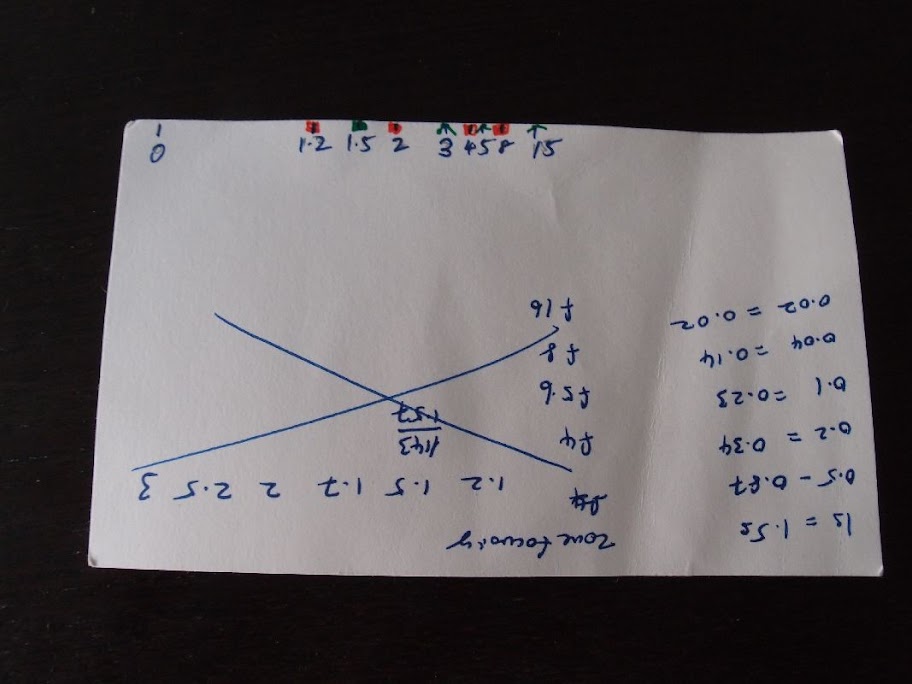 0 1.2 1.5 2 3 4 5 8 15
1s = 1.5s
0.5 -
0.2 = 0.34
0.1 = 0.23
0.04 = 0.14
0.02 = 0.02
Zone focusing
f4
1.2 1.5 1.7 2 2.5 3
f4
1.57
f5.6
f8
f16